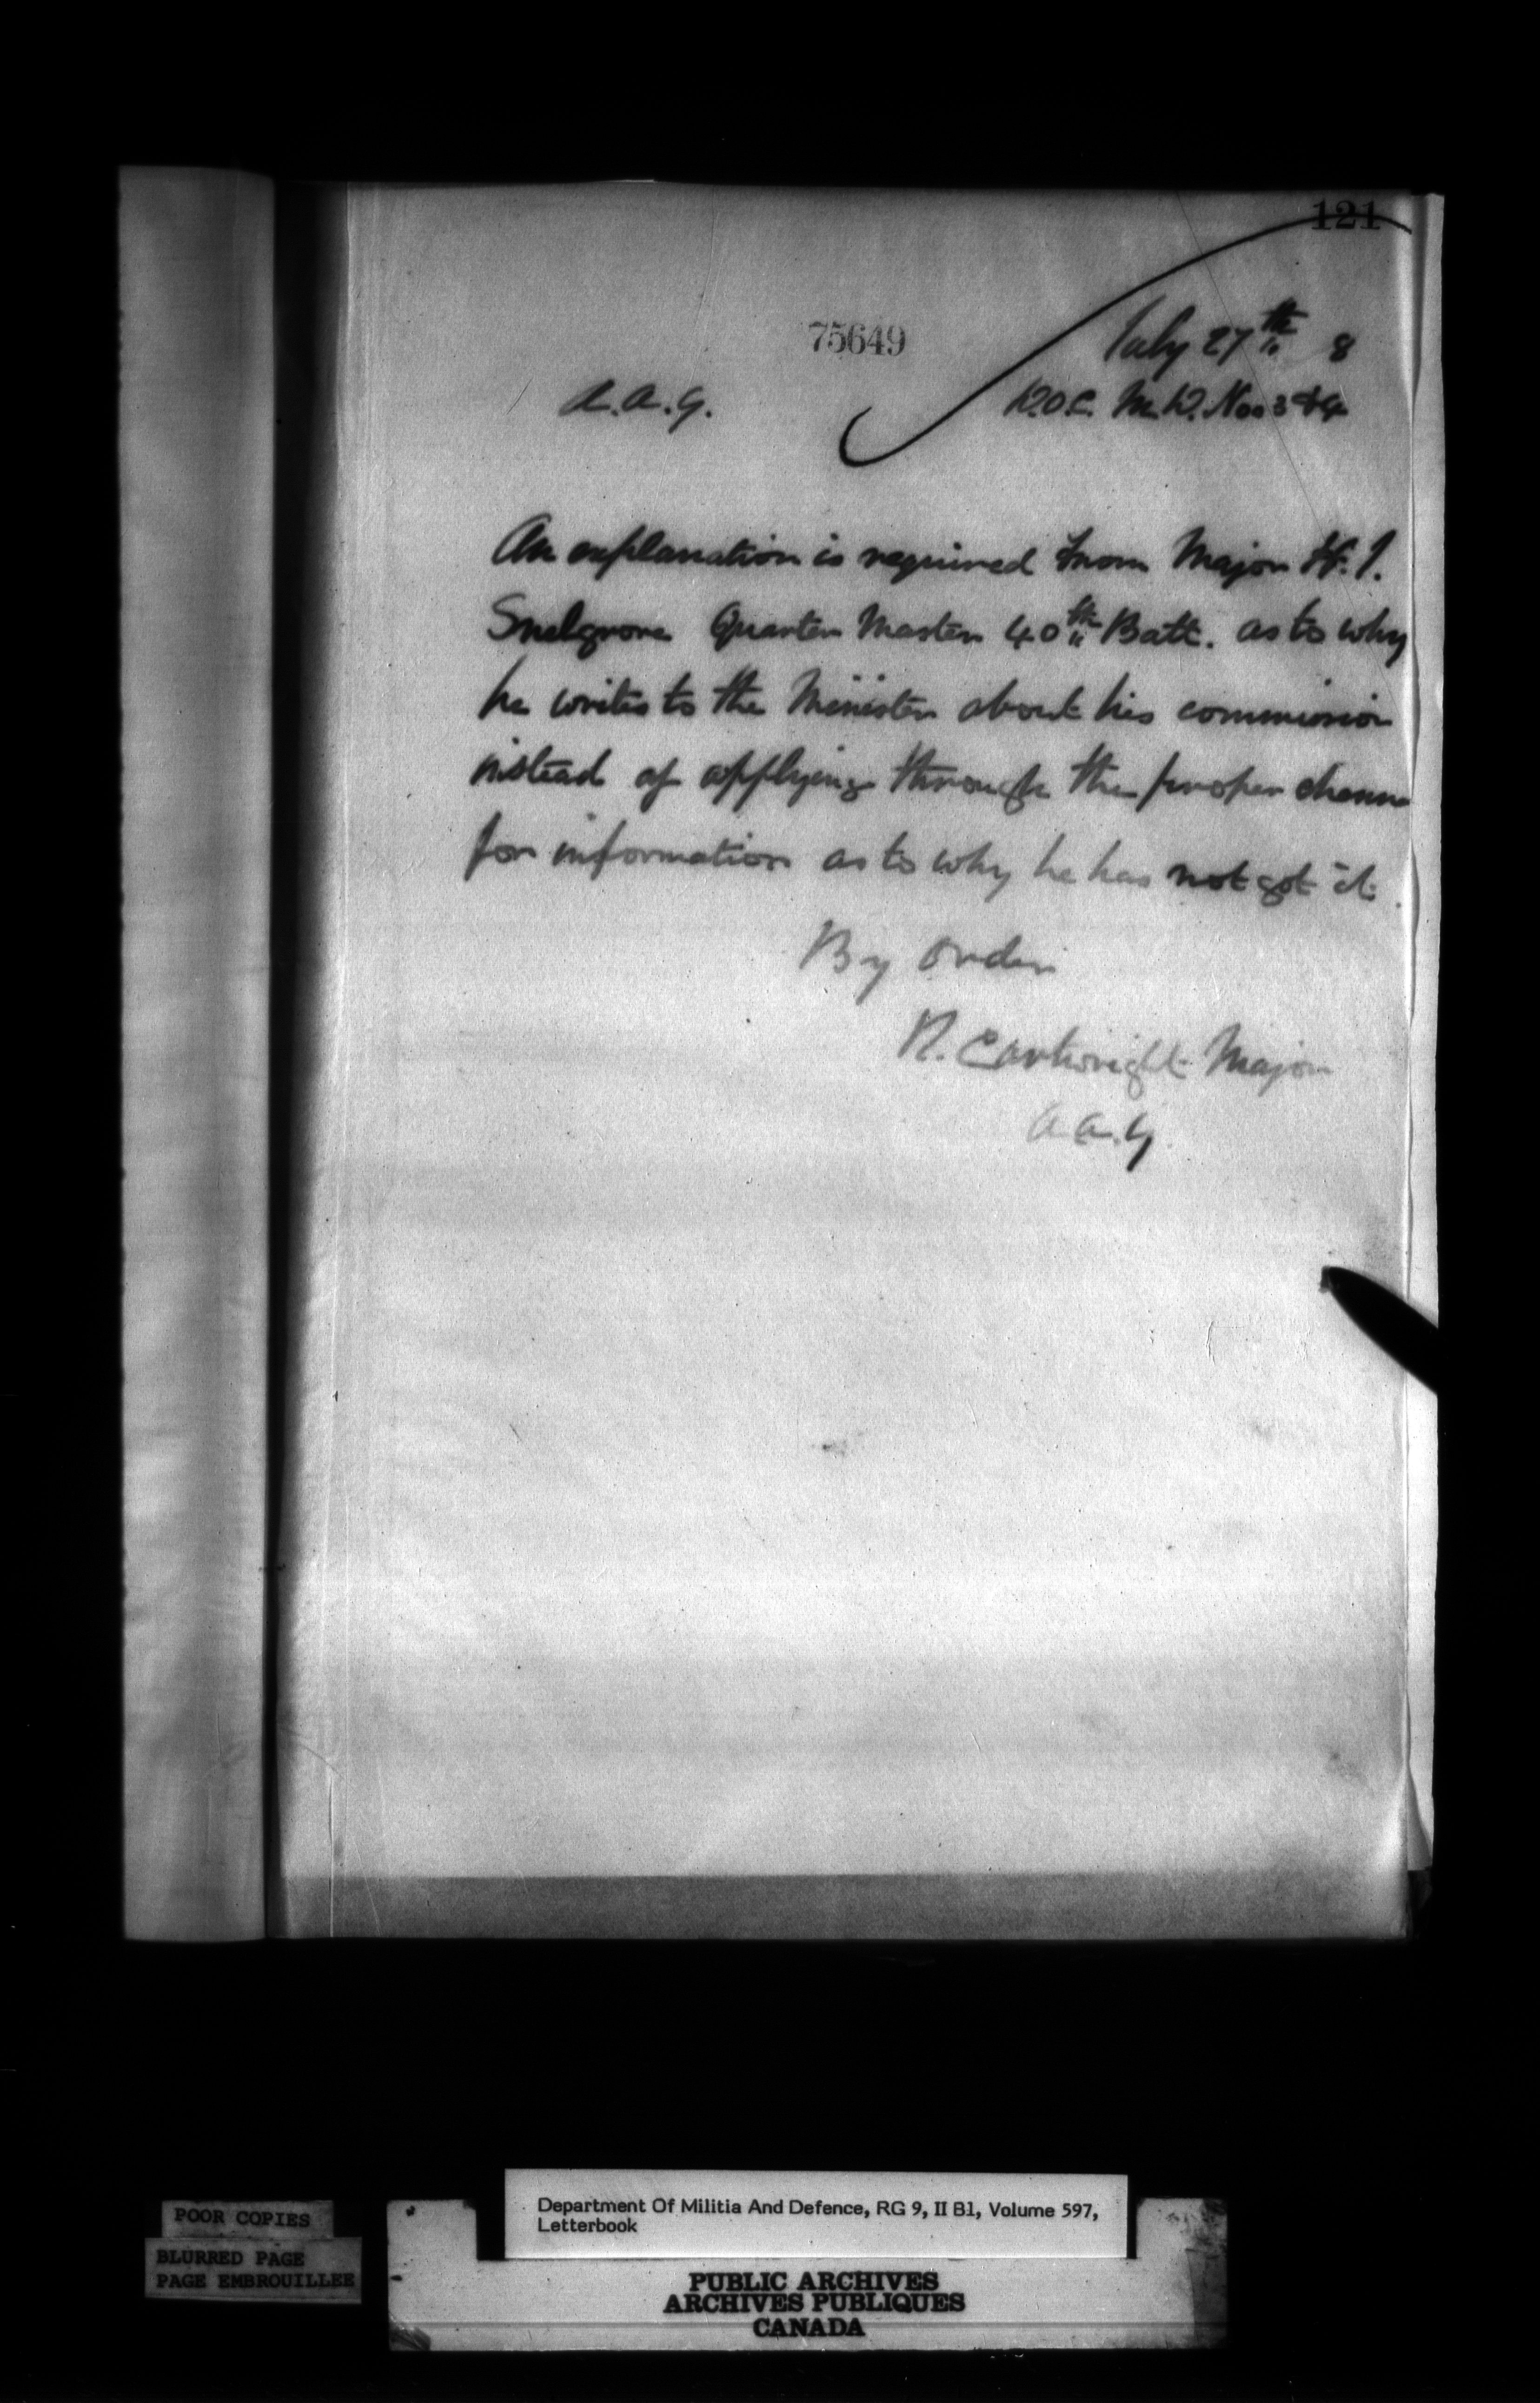 121
75649
July 27th 8
A.A.G.
D.O.C. M.D. Nos 3 & 4
An explanation is required from Major H. J.
Snelgrove Quarter Master 40th Batt. as to why
he writes to the Minister about his commission
instead of applying through the proper channe
for information as to why he has not got it.
By Order
R. Cartwright Major
A A.G
POOR COPIES
BLURRED PAGE
PAGE EMBROUILLEE
Department Of Militia And Defence, RG 9, II B1, Volume 597,
Letterbook
PUBLIC ARCHIVES
ARCHIVES PUBLIQUES
CANADA